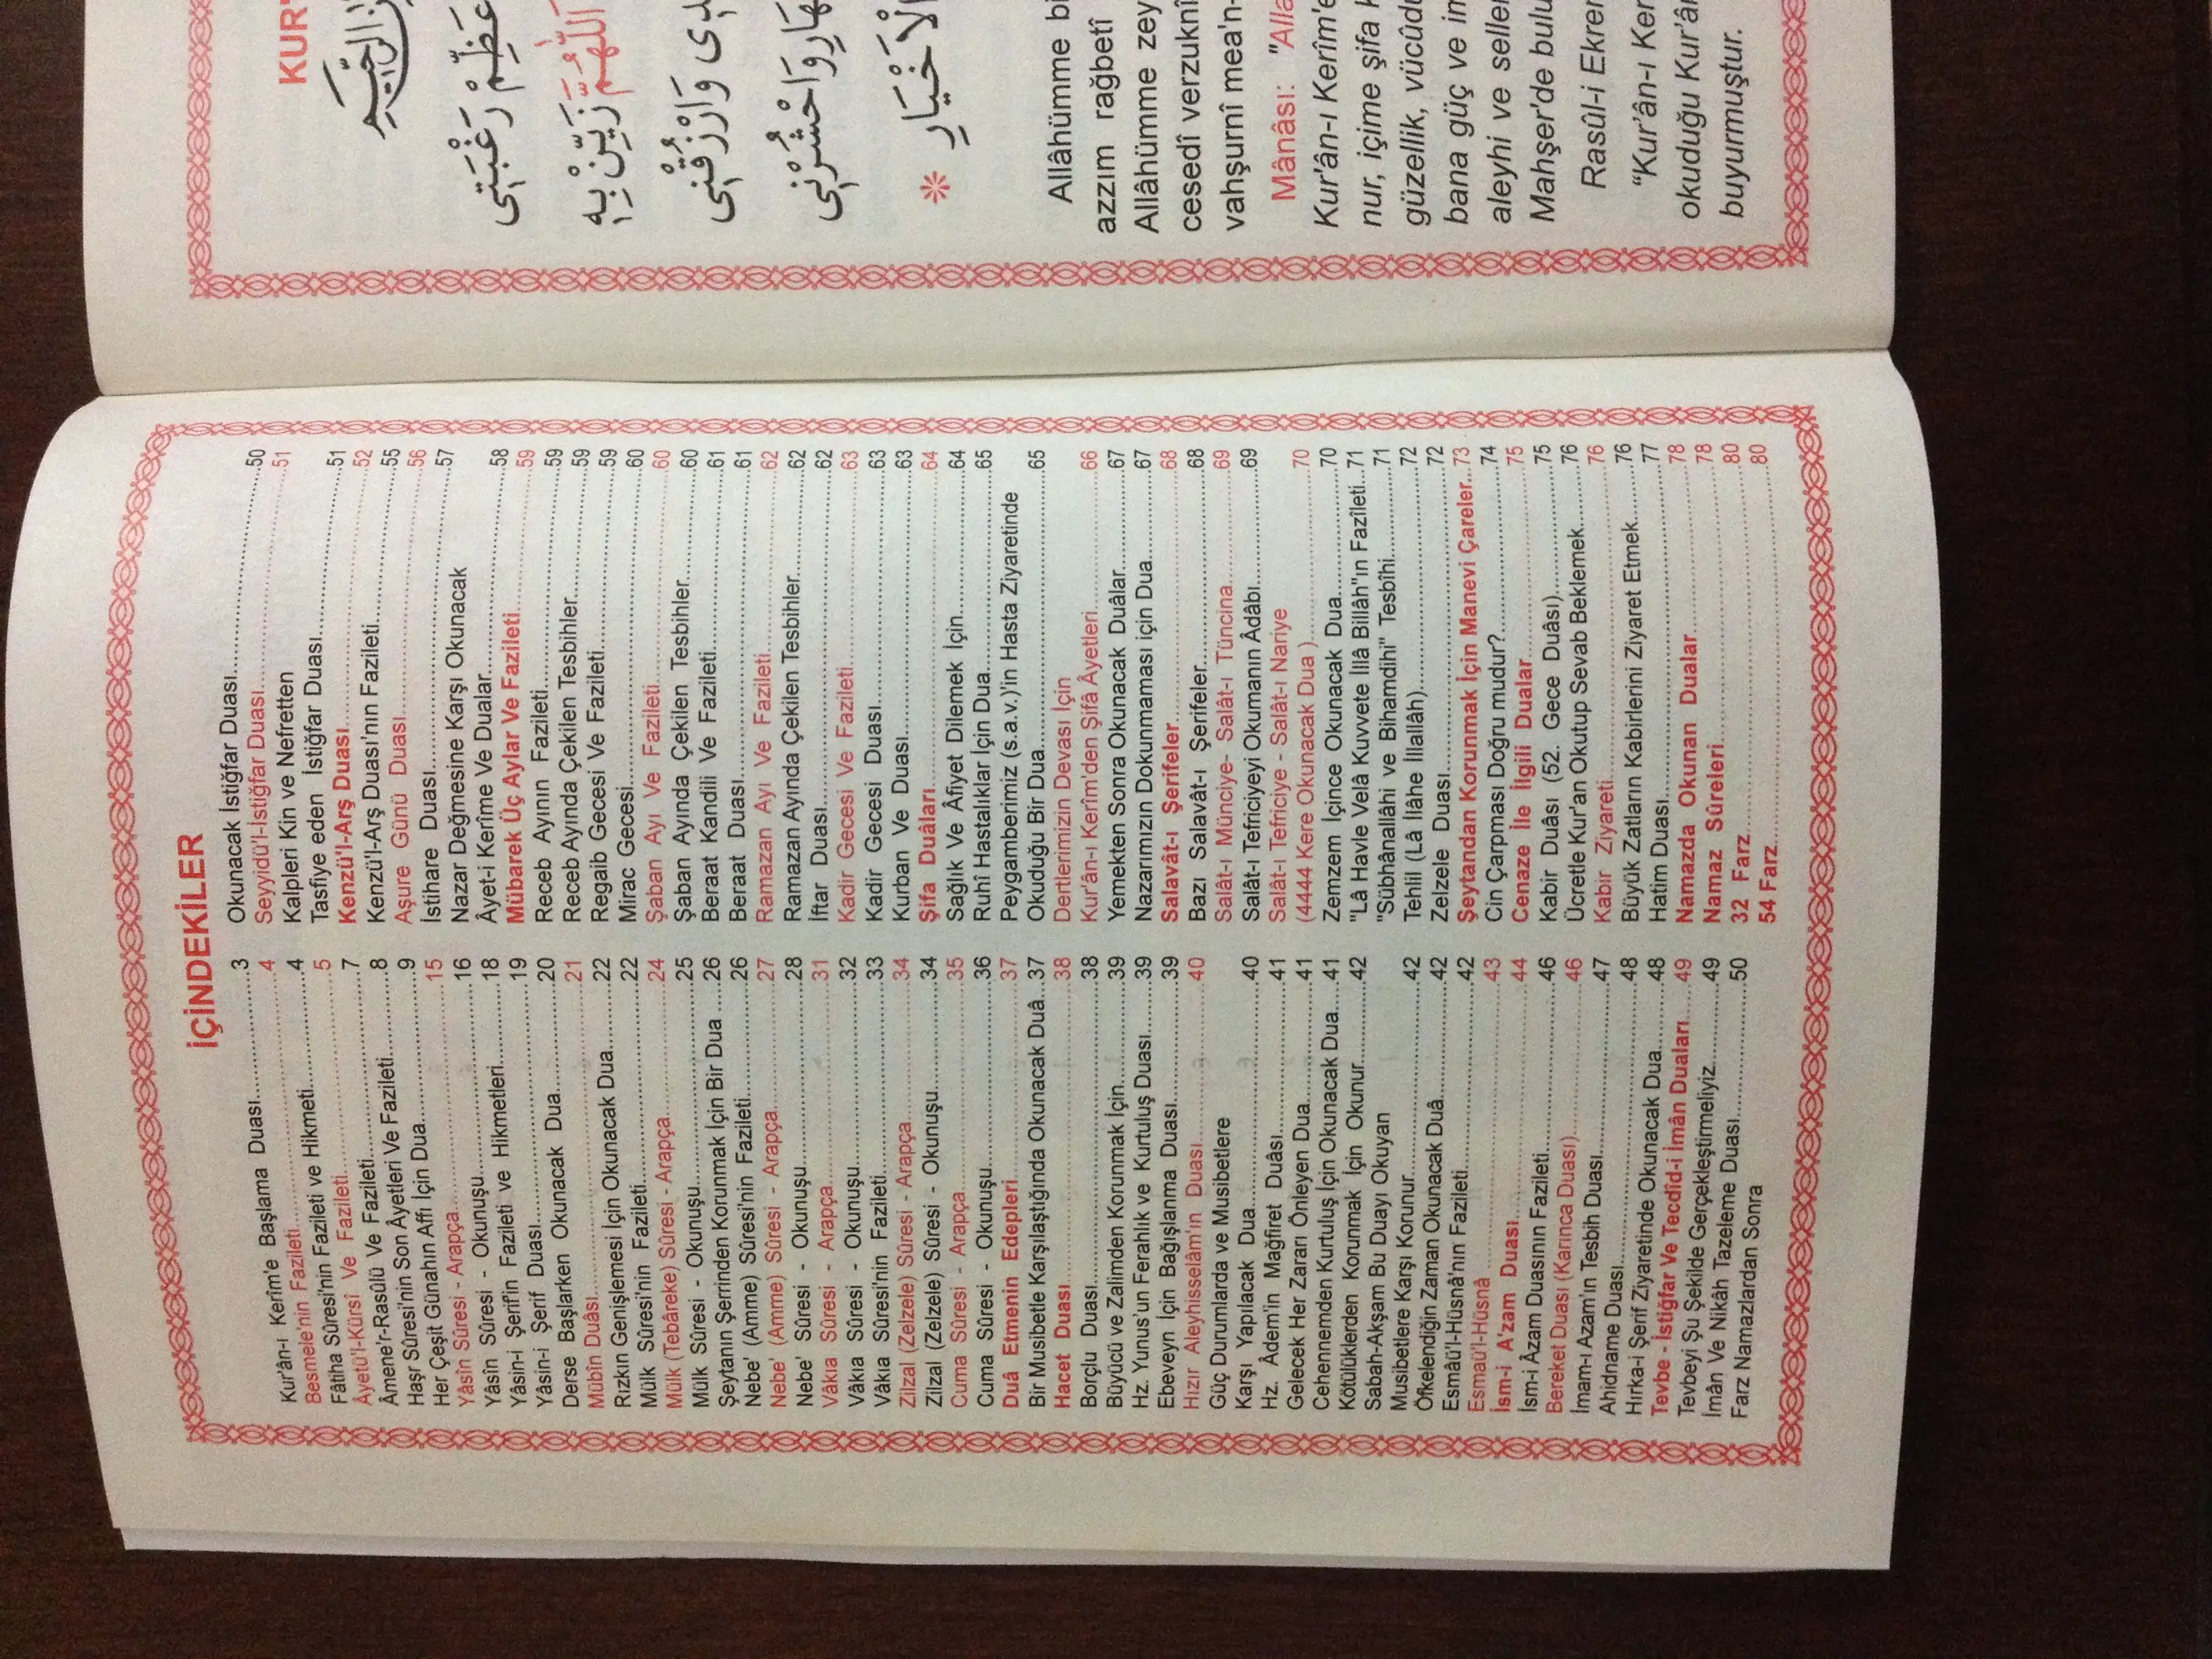 İÇİNDEKİLER
Kur'ân-ı Kerîm'e Başlama Duası...3
Besmele'nin Fazileti...4
Fâtiha Sûresi'nin Fazileti ve Hikmeti...4
Âyetü'l-Kürsî Ve Fazileti...5
Âmene'r-Rasûlü Ve Fazileti...7
Haşr Sûresi'nin Son Âyetleri Ve Fazileti...8
Her Çeşit Günahın Affı İçin Dua...9
Yâsîn Sûresi - Arapça...15
Yâsîn Sûresi - Okunuşu...16
Yâsin-i Şerif'in Fazileti ve Hikmetleri...18
Yâsin-i Şerif Duası...19
Derse Başlarken Okunacak Dua...20
Mübîn Duâsı...21
Rızkın Genişlemesi İçin Okunacak Dua...22
Mülk Sûresi'nin Fazileti...22
Mülk (Tebâreke) Sûresi - Arapça...24
Mülk Sûresi - Okunuşu...25
Şeytanın Şerrinden Korunmak İçin Bir Dua...26
Nebe' (Amme) Sûresi'nin Fazileti...26
Nebe' (Amme) Sûresi - Arapça...27
Nebe' Sûresi - Okunuşu...28
Vâkıa Sûresi - Arapça...31
Vâkıa Sûresi - Okunuşu...32
Vâkıa Sûresi'nin Fazileti...33
Zilzal (Zelzele) Sûresi - Arapça...34
Zilzal (Zelzele) Sûresi - Okunuşu...34
Cuma Sûresi - Arapça...35
Cuma Sûresi - Okunuşu...36
Duâ Etmenin Edepleri...37
Bir Musibetle Karşılaştığında Okunacak Duâ...37
Hacet Duası...38
Borçlu Duası...38
Büyücü ve Zalimden Korunmak İçin...39
Hz. Yunus'un Ferahlık ve Kurtuluş Duası...39
Ebeveyn İçin Bağışlanma Duası...39
Hızır Aleyhisselâm'ın Duası...40
Güç Durumlarda ve Musibetlere
Karşı Yapılacak Dua...40
Hz. Âdem'in Mağfiret Duâsı...41
Gelecek Her Zararı Önleyen Dua...41
Cehennemden Kurtuluş İçin Okunacak Dua...41
Kötülüklerden Korunmak İçin Okunur...42
Sabah-Akşam Bu Duayı Okuyan
Musibetlere Karşı Korunur...42
Öfkelendiğin Zaman Okunacak Duâ...42
Esmâü'l-Hüsnâ'nın Fazileti...42
Esmaü'l-Hüsnâ...43
İsm-i A'zam Duası...44
İsm-i Âzam Duasının Fazileti...46
Bereket Duası (Karınca Duası)...46
İmam-ı Azam'ın Tesbih Duası...47
Ahidname Duası...48
Hırka-i Şerif Ziyaretinde Okunacak Dua...48
Tevbe - İstiğfar Ve Tecdîd-i İmân Duaları...49
Tevbeyi Şu Şekilde Gerçekleştirmeliyiz...49
İmân Ve Nikâh Tazeleme Duası...50
Farz Namazlardan Sonra
Okunacak İstiğfar Duası...50
Seyyidü'l-İstiğfar Duası...51
Kalpleri Kin ve Nefretten
Tasfiye eden İstiğfar Duası...51
Kenzü'l-Arş Duası...52
Kenzü'l-Arş Duası'nın Fazileti...55
Aşure Günü Duası...56
İstihare Duası...57
Nazar Değmesine Karşı Okunacak
Âyet-i Kerîme Ve Dualar...58
Mübarek Üç Aylar Ve Fazileti...59
Receb Ayının Fazileti...59
Receb Ayında Çekilen Tesbihler...59
Regaib Gecesi Ve Fazileti...59
Mirac Gecesi...60
Şaban Ayı Ve Fazileti...60
Şaban Ayında Çekilen Tesbihler...60
Beraat Kandili Ve Fazileti...61
Beraat Duası...61
Ramazan Ayı Ve Fazileti...62
Ramazan Ayında Çekilen Tesbihler...62
İftar Duası...62
Kadir Gecesi Ve Fazileti...63
Kadir Gecesi Duası...63
Kurban Ve Duası...63
Şifa Duâları...64
Sağlık Ve Âfiyet Dilemek İçin...64
Ruhî Hastalıklar İçin Dua...65
Peygamberimiz (s.a.v.)'in Hasta Ziyaretinde
Okuduğu Bir Dua...65
Dertlerimizin Devası İçin
Kur'ân-ı Kerîm'den Şifâ Âyetleri...66
Yemekten Sonra Okunacak Duâlar...67
Nazarımızın Dokunmaması için Dua...67
Salavât-ı Şerifeler...68
Bazı Salavât-ı Şerifeler...68
Salât-ı Münciye- Salât-ı Tüncina...69
Salât-ı Tefriciyeyi Okumanın Âdâbı...69
Salât-ı Tefriciye - Salât-ı Nariye
(4444 Kere Okunacak Dua )...70
Zemzem İçince Okunacak Dua...70
"Lâ Havle Velâ Kuvvete İllâ Billâh"ın Fazîleti...71
"Sübhânallâhi ve Bihamdihi" Tesbîhi...71
Tehlil (Lâ İlâhe İllallâh)...72
Zelzele Duası...72
Şeytandan Korunmak İçin Manevi Çareler...73
Cin Çarpması Doğru mudur?...74
Cenaze İle İlgili Dualar...75
Kabir Duâsı (52. Gece Duâsı)...75
Ücretle Kur'an Okutup Sevab Beklemek...76
Kabir Ziyareti...76
Büyük Zatların Kabirlerini Ziyaret Etmek...76
Hatim Duası...77
Namazda Okunan Dualar...78
Namaz Sûreleri...78
32 Farz...80
54 Farz...80
KUR'
عَظِّمْ رَغْبَتِى
اَللّٰهُمَّ زَيِّنْ بِهِ
وَارْزُقْنِى
وَاحْشُرْنِى
الْاَخْيَارِ
Allâhümme bi
azzım rağbetî
Allâhümme zey
cesedî verzuknî
vahşurnî mea'n-
Mânâsı: "Alla
Kur'ân-ı Kerîm'e
nur, içime şifa
güzellik, vücûdu
bana güç ve im
aleyhi ve seller
Mahşer'de bulu
Rasûl-i Ekrer
"Kur'ân-ı Ker
okuduğu Kur'ân
buyurmuştur.